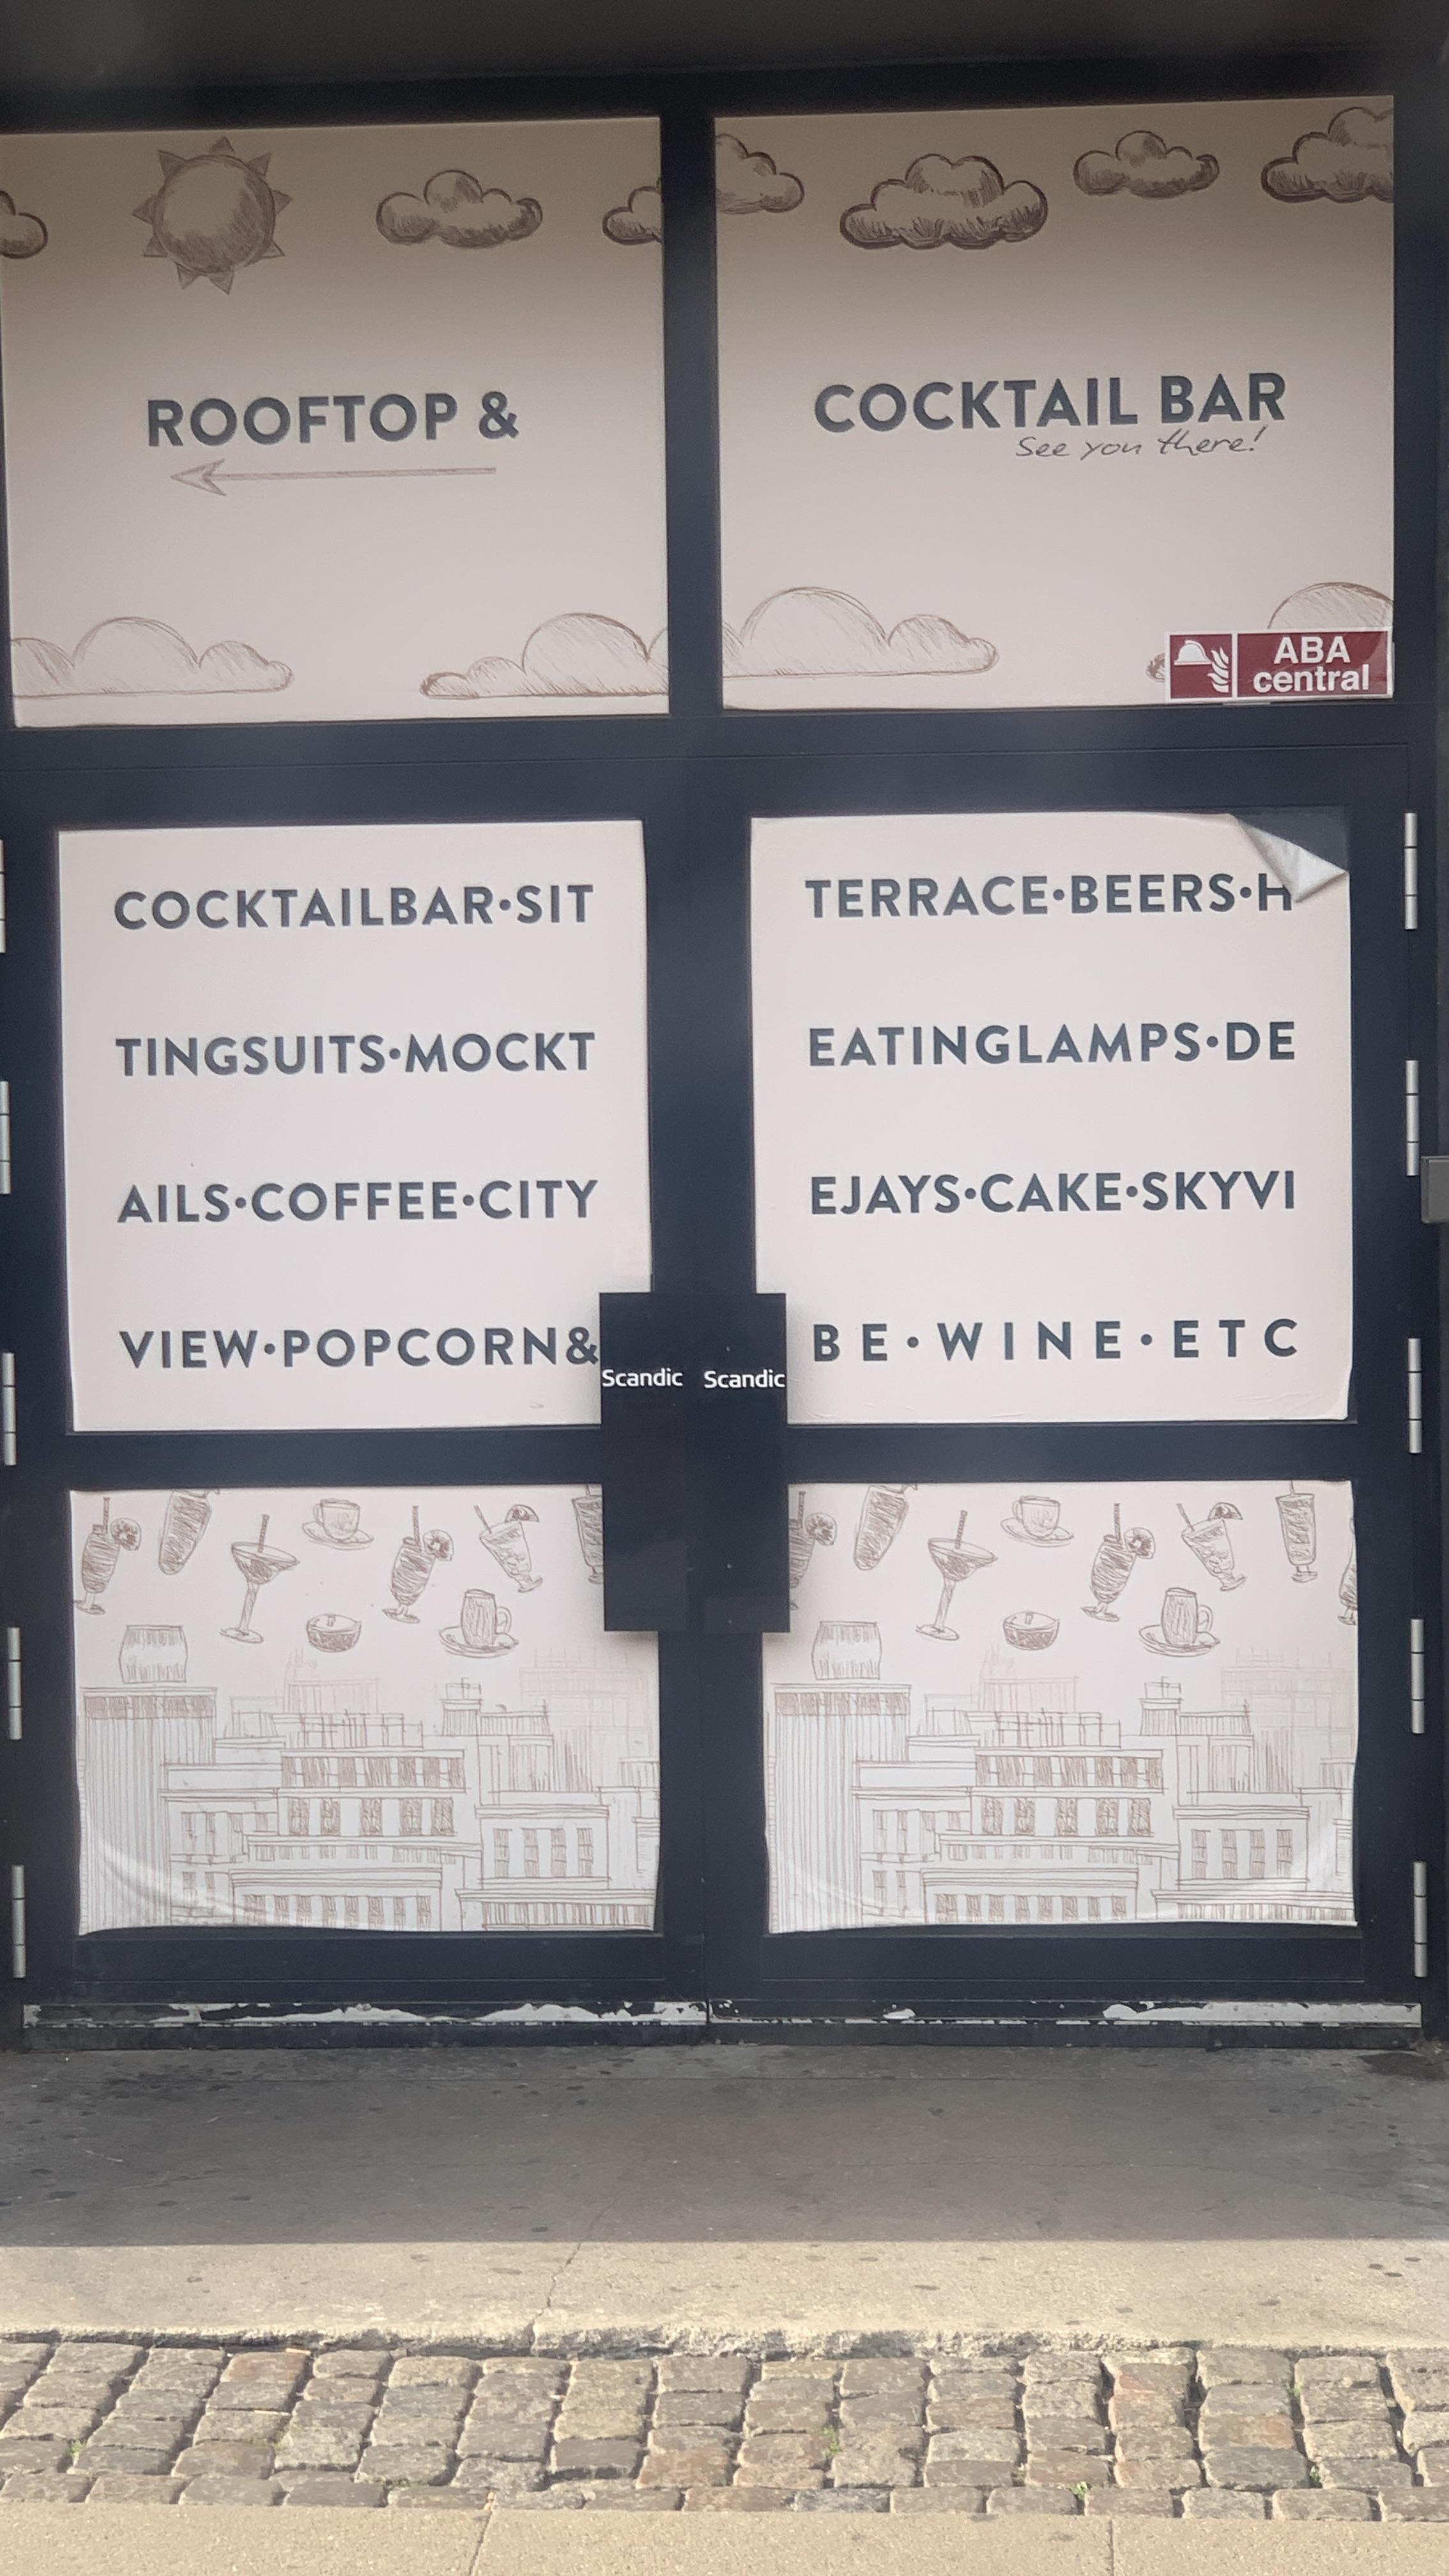 ROOFTOP &
COCKTAIL BAR
See you there!
ABA
central
COCKTAILBAR•SIT
TINGSUITS•MOCKT
AILS•COFFEE•CITY
VIEW•POPCORN&
TERRACE•BEERS•H
EATINGLAMPS•DE
EJAYS•CAKE•SKYVI
BE•WINE•ETC
Scandic
Scandic